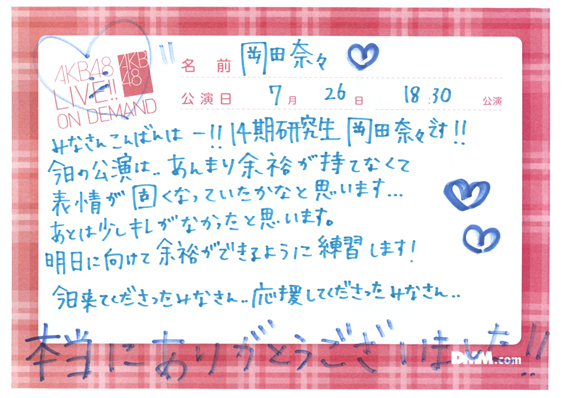 AKB48
LIVE!!
ON DEMAND
AKB
48
名前 岡田奈々
公演日 7月 26日 18:30 公演
みなさんこんばんはー!! 14期研究生 岡田奈々です!!
今日の公演は..あんまり余裕が持てなくて
表情が固くなっていたかなと思います...
あとは少しキレがなかったと思います。
明日に向けて余裕ができるように練習します!
今日来てくださったみなさん..応援してくださったみなさん..
本当にありがとうございました!!
DMM.com